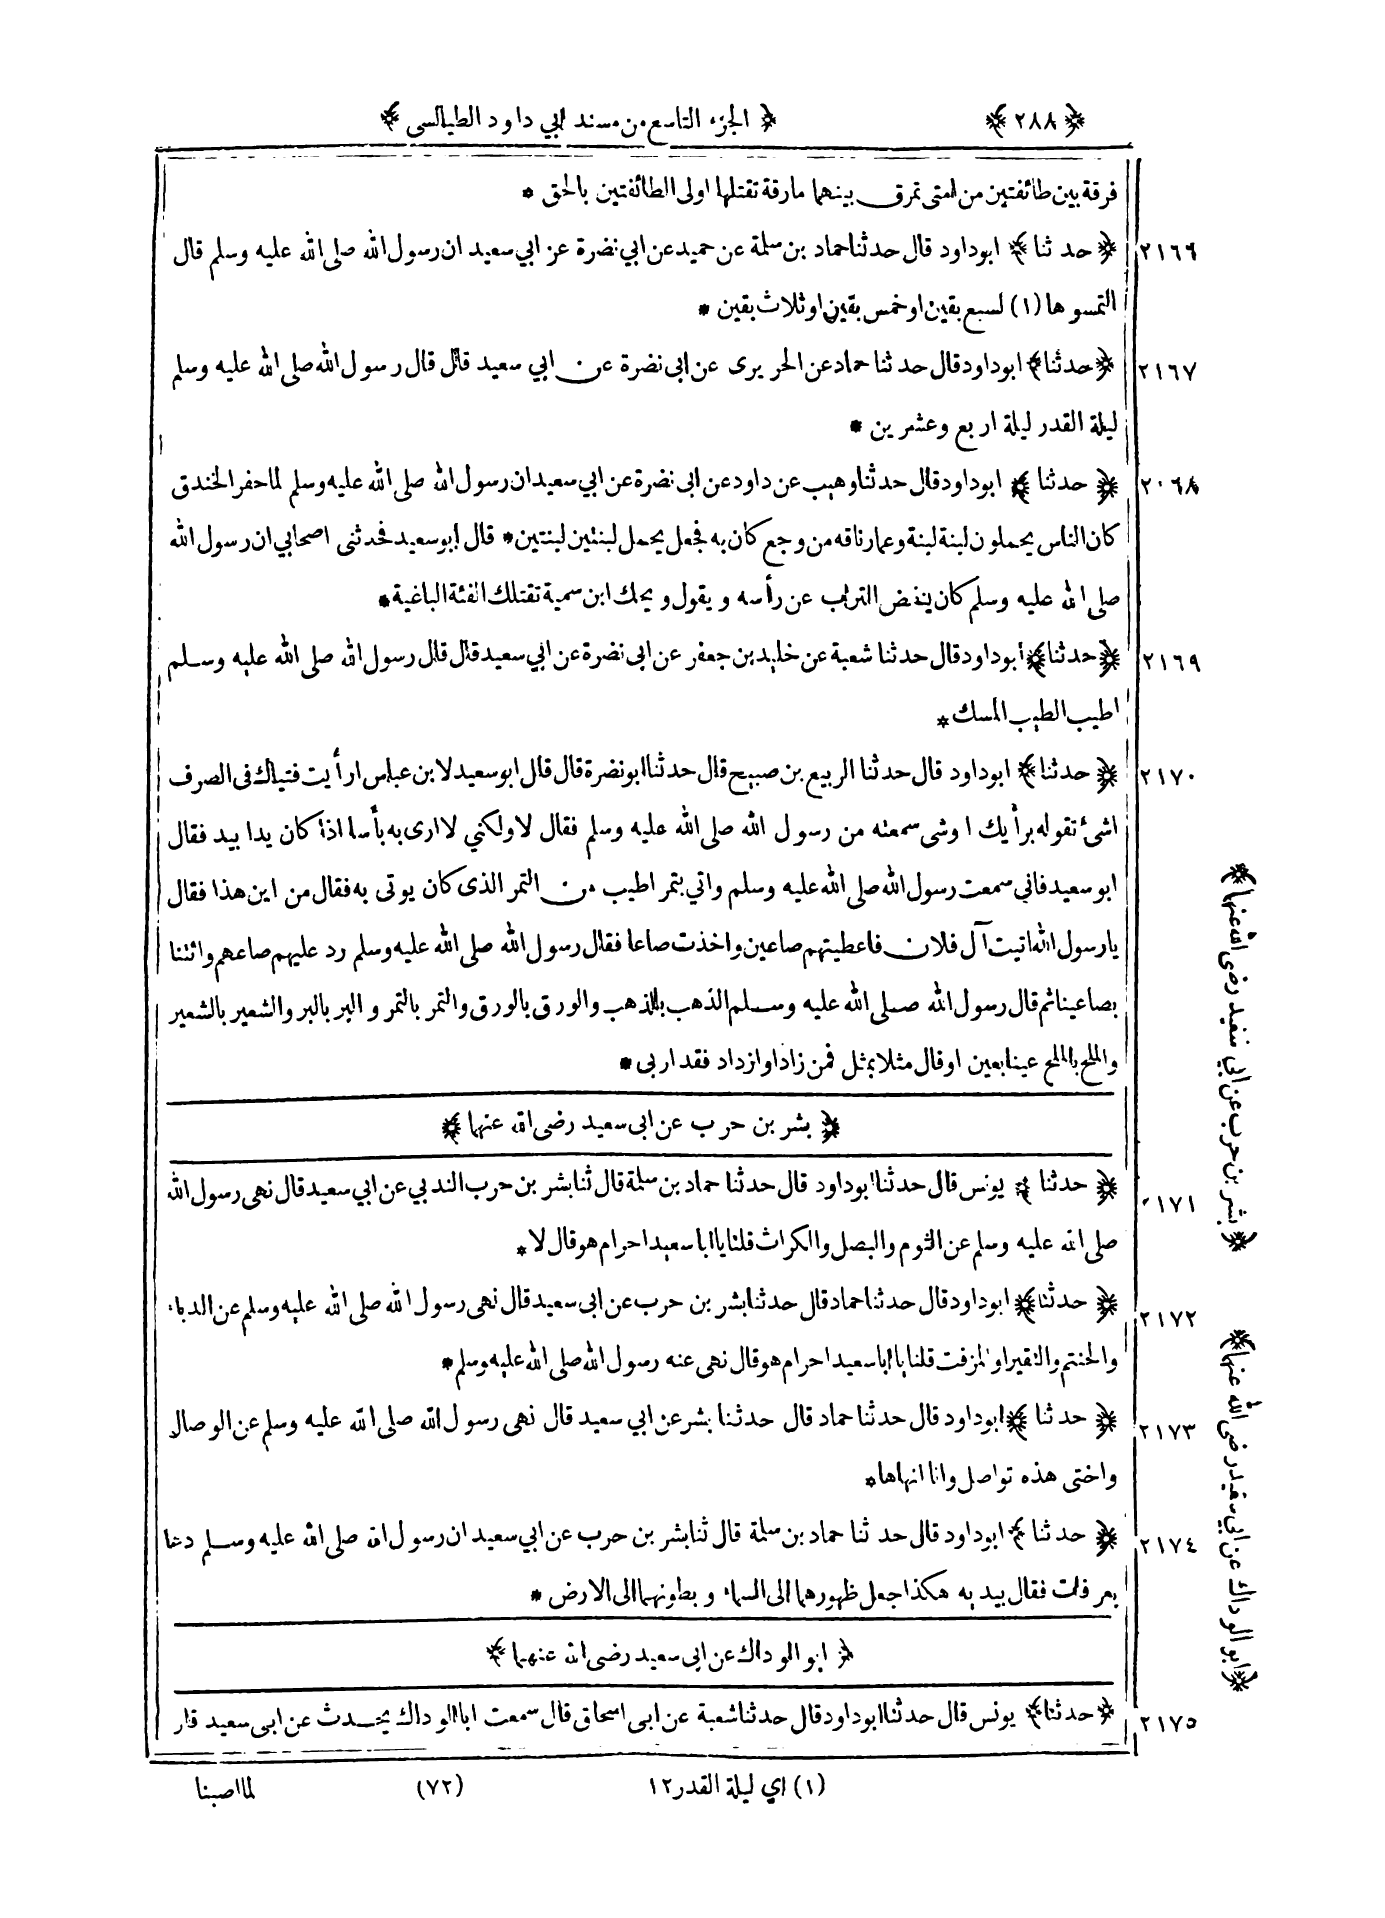 ﴿ ٢٨٨ ﴾ ﴿ الجزء التاسع من مسند ابي داود الطيالسى ﴾
فرقة بين طائفتين من امتى تمرق بينهما مارقة تقتلها اولى الطائفتين بالحق *
٢١٦٦ ﴿ حد ثنا ﴾ ابوداود قال حدثنا حماد بن سلمة عن حميد عن ابي نضرة عن ابي سعيد ان رسول الله صلى الله عليه وسلم قال
التمسو ها (١) لسبع بقين او خمس بقين او ثلاث بقين *
٢١٦٧ ﴿ حدثنا ﴾ ابوداود قال حد ثنا حماد عن الحر يرى عن ابى نضرة عن ابي سعيد قال قال رسول الله صلى الله عليه وسلم
ليلة القدر ليلة اربع وعشرين *
٢٠٦٨ ﴿ حدثنا ﴾ ابوداود قال حدثنا وهيب عن داود عن ابى نضرة عن ابي سعيد ان رسول الله صلى الله عليه وسلم لما حفر الخندق
كان الناس يحملون لبنة لبنة وعمار ناقه من وجع كان به فجعل يحمل لبنتين لبنتين * قال ابو سعيد فحدثنى اصحابي ان رسول الله
صلى الله عليه وسلم كان ينفض التراب عن رأسه و يقول و يحك ابن سمية تقتلك الفئة الباغية *
٢١٦٩ ﴿ حدثنا ﴾ ابوداود قال حدثنا شعبة عن خليد بن جعفر عن ابى نضرة عن ابي سعيد قال قال رسول الله صلى الله عليه وسلم
اطيب الطيب المسك *
٢١٧٠ ﴿ حدثنا ﴾ ابوداود قال حدثنا الربيع بن صبيح قال حدثنا ابو نضرة قال قال ابو سعيد لابن عباس ارأيت فتياك فى الصرف
اشئ تقوله برأيك اوشى سمعته من رسول الله صلى الله عليه وسلم فقال لا ولكني لا ارى به بأسا اذا كان يدا بيد فقال
ابو سعيد فاني سمعت رسول الله صلى الله عليه وسلم واتي بتمر اطيب من التمر الذى كان يوتى به فقال من اين هذا فقال
يارسول الله اتيت آل فلان فاعطيتهم صاعين واخذت صاعا فقال رسول الله صلى الله عليه وسلم رد عليهم صاعهم وائتنا
بصاعينا ثم قال رسول الله صلى الله عليه وسلم الذهب بالذهب والورق بالورق والتمر بالتمر و البر بالبر والشعير بالشعير
والملح بالملح عينا بعين او قال مثلا بمثل فمن زاد او ازداد فقد اربى *
﴿ بشر بن حرب عن ابى سعيد رضى الله عنهما ﴾
٢١٧١ ﴿ حدثنا ﴾ يونس قال حدثنا ابوداود قال حدثنا حماد بن سلمة قال ثنا بشر بن حرب الندبي عن ابي سعيد قال نهى رسول الله
صلى الله عليه وسلم عن الثوم والبصل والكراث قلنا يا ابا سعيد احرام هو قال لا *
٢١٧٢ ﴿ حدثنا ﴾ ابوداود قال حدثنا حماد قال حدثنا بشر بن حرب عن ابى سعيد قال نهى رسول الله صلى الله عليه وسلم عن الدباء
والحنتم والنقير او المزفت قلنا يا ابا سعيد احرام هو قال نهى عنه رسول الله صلى الله عليه وسلم *
٢١٧٣ ﴿ حد ثنا ﴾ ابوداود قال حدثنا حماد قال حدثنا بشر عن ابي سعيد قال نهى رسول الله صلى الله عليه وسلم عن الوصال
واختى هذه تواصل وانا انهاها *
٢١٧٤ ﴿ حد ثنا ﴾ ابوداود قال حد ثنا حماد بن سلمة قال ثنا بشر بن حرب عن ابي سعيد ان رسول الله صلى الله عليه وسلم دعا
بعرفات فقال بيد يه هكذا جعل ظهورهما الى السماء و بطونهما الى الارض *
﴿ ابو الوداك عن ابى سعيد رضى الله عنهما ﴾
٢١٧٥ ﴿ حدثنا ﴾ يونس قال حدثنا ابوداود قال حدثنا شعبة عن ابى اسحاق قال سمعت ابا الوداك يحدث عن ابى سعيد قال
(١) اي ليلة القدر ١٢ (٧٢) لما اصبنا
﴿ بشر بن حرب عن ابي سعيد رضى الله عنهما ﴾
﴿ ابو الوداك عن ابي سعيد رضى الله عنهما ﴾